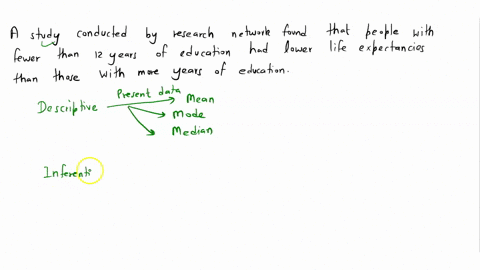 A study conducted by research network found that people with
fewer than 12 years of education had lower life expectancies
than those with more years of education.
Present data
Descriptive Mean
Mode
Median
Inferenti